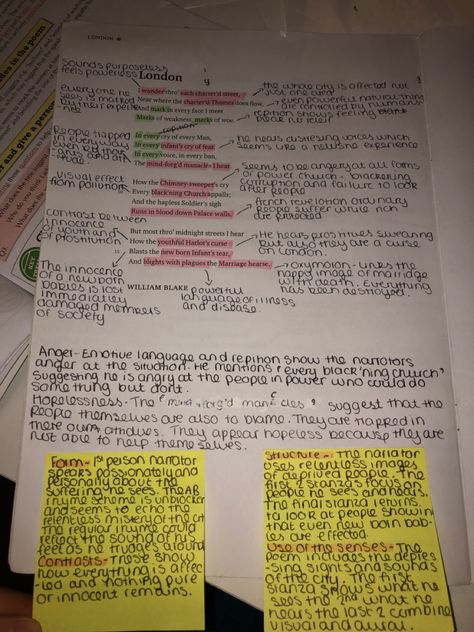 LONDON
Sounds purposeless
feels powerless
London
everyone he
sees is marked
by their
People trapped
in everyway
even
Visual effect
from pollution
contrast between
innocence
of youth and
prostitution
The innocence
of a newborn
babies is lost
immediatley
damaged members
of society
I wander thro' each charter'd street,
Near where the charter'd Thames does flow,
And mark in every face I meet
Marks of weakness, marks of woe.
repition
In every cry of every Man,
In every Infant's cry of fear,
In every voice, in every ban,
The mind-forg'd manacles I hear
How the Chimney-sweeper's cry
Every black'ning Church appalls;
And the hapless Soldier's sigh
Runs in blood down Palace walls,
But most thro' midnight streets I hear
How the youthful Harlot's curse
Blasts the new born Infant's tear,
And blights with plagues the Marriage hearse.
WILLIAM BLAKE
powerful
language of illness
and disease.
the whole city is affected not
just one area
even powerful natural thing
are controlled by humans
repition shows feeling
he hears distressing voices which
seems like a experience
Seems to be angery at all forms
of power church - blackening
corruption and failure to look
after people
french revoltion ordinary
people suffer while rich
are protected
He hears prostitues swearing
but also they are a curse
on London.
oxymoron - links the
happy image of marridge
with death. everything
has been destroyed.
Anger - Emotive language and repition show the narrotors
anger at the situation. He mentions 'every black'ning church'
suggesting he is angry at the people in power who could do
something but dont.
Hopelessness - The 'mind-forg'd manacles' suggest that the
people themselves are also to blame. They are trapped in
there own They appear hopeless because they are
not able to help themselves.
Form - 1st person narrator
speaks passionately and
personally about the
suffering he sees. The AB
rhyme scheme is unbroken
and seems to echo the
relentless misery of the cit
The regular could
reflect the sound of his
feet as he trudges around
Contrasts - These show
how everything is affec
-ted and nothing pure
or innocent remains.
Structure - The narrator
uses relentless images
of deprived people. The
first 2 stanzas focus on
people he sees and hears.
The final stanza returns
to look at people showin
that even new born bab-
ies are effected.
Use of the senses - The
poem includes the depres
-sing sights and sounds
of the city. The first
stanza shows what he
sees the 2nd what he
hears the last 2 combine
visual and aural.